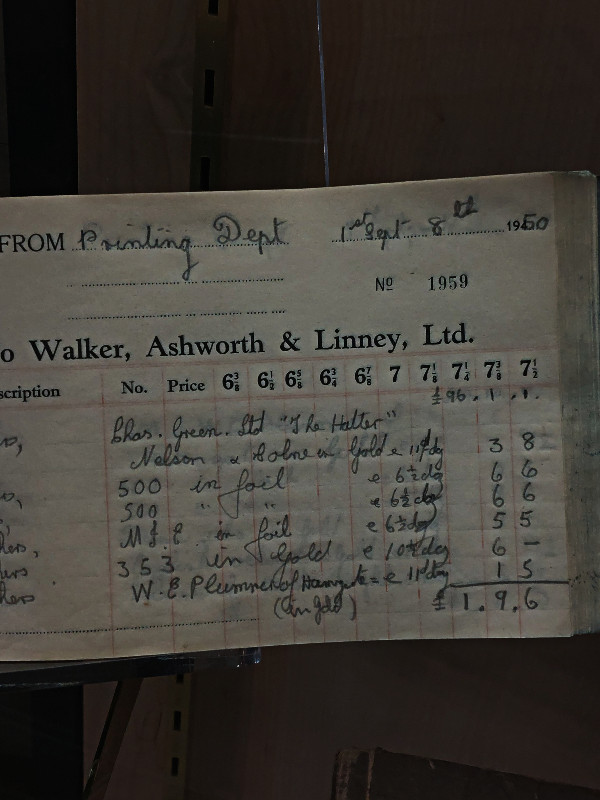 FROM Printing Dept 1st Sept 8th 1950
No 1959
o Walker, Ashworth & Linney, Ltd.
scription No. Price 6 3/8 6 1/2 6 5/8 6 3/4 6 7/8 7 7 1/8 7 1/4 7 3/8 7 1/2
£96.1.1.
Chas. Green. Ltd "The Hatter"
Nelson & Colne in Gold @ 11d dg 3 8
500 in foil @ 6½ dg 6 6
500 " " @ 6½ dg 6 6
in foil @ 6½ dg 5 5
353 in Gold @ 10½ dg 6 -
W. E. Plummer of = @ 11d dg 1 5
£1.9.6